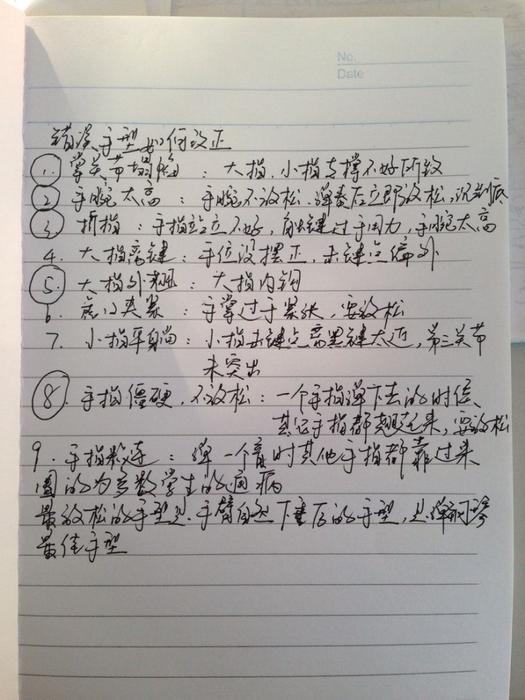 No.
Date
错误手型如何改正
①.掌关节塌陷：大指.小指支撑不好所致
②手腕太高：手腕不放松.弹奏后立即放松,沉到底
③折指：手指站立不好,触键过于用力,手腕太高
4.大指离键：手位没摆正,击键点偏外
⑤.大指外翘：大指内钩
6.虎口夹紧：手掌过于紧张,要放松
7.小指平躺：小指击键点离黑键太近,第三关节
未突出
⑧手指僵硬,不放松：一个手指弹下去的时候、
其它手指都翘起来,要放松
9.手指粘连：弹一个音时其他手指都靠过来
圈的为多数学生的通病
最放松的手型是.手臂自然下垂后的手型,是弹钢琴
最佳手型